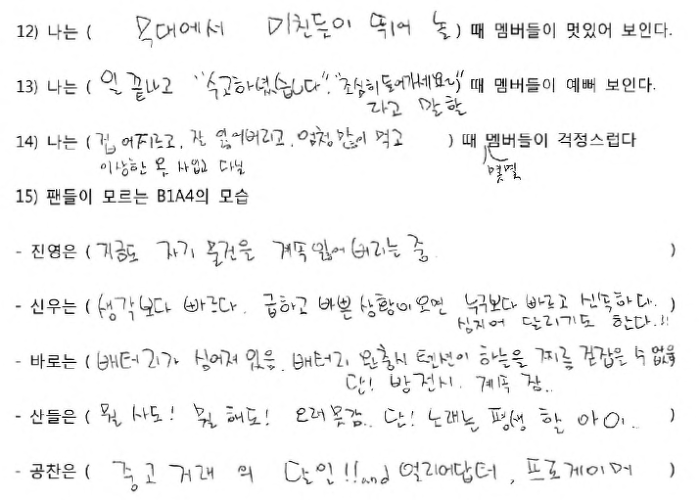 12) 나는 ( 무대에서 미친듯이 뛰어 놀 ) 때 멤버들이 멋있어 보인다.
13) 나는 ( 일 끝나고 "수고하셨습니다". "조심히 들어가세요~" ) 때 멤버들이 예뻐 보인다.
라고 말할
14) 나는 ( 집 어지르고, 잘 잃어버리고, 엄청 많이 먹고 ) 때 멤버들이 걱정스럽다
이상한 옷 사입고 다닐 몇몇
15) 팬들이 모르는 B1A4의 모습
- 진영은 ( 지금도 자기 물건을 계속 잃어버리는 중. )
- 신우는 ( 생각보다 빠르다. 급하고 바쁜 상황이 오면 누구보다 빠르고 신속하다. )
심지어 달리기도 한다.!!
- 바로는 ( 배터리가 심어져 있음. 배터리 완충시 텐션이 하늘을 찌름 걷잡을 수 없음
단! 방전시. 계속 잠..
- 산들은 ( 뭘 사도! 뭘 해도! 오래 못감.. 단! 노래는 평생 할 아이.. )
- 공찬은 ( 중고 거래 의 달인!! and 얼리어답터, 프로게이머 )